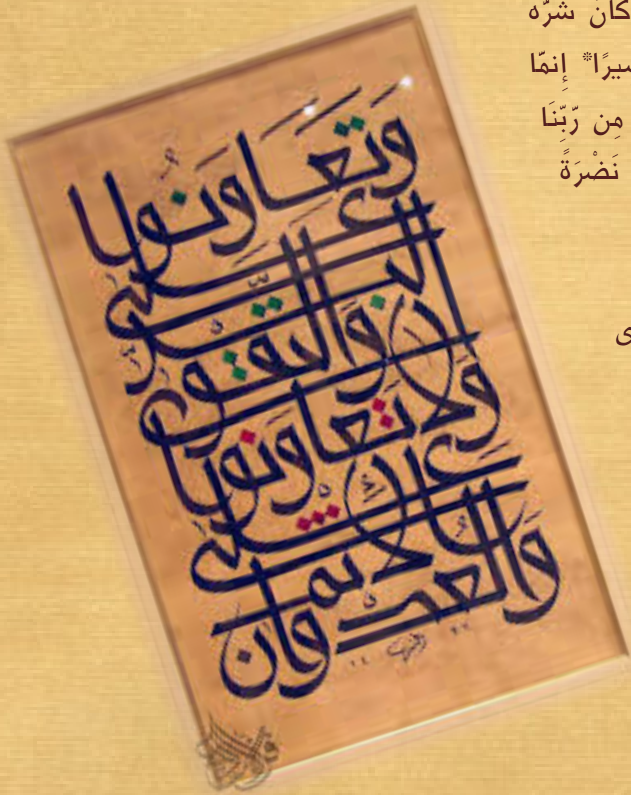 كان شرّه
سيرًا* إنمّا
مِن رّبِّنَا
نَضْرَةً
وَتَعَاوَنُوا
عَلَى البِرِّ
وَالتَّقْوَى
وَلَا تَعَاوَنُوا
عَلَى الْإِثْمِ
وَالْعُدْوَانِ